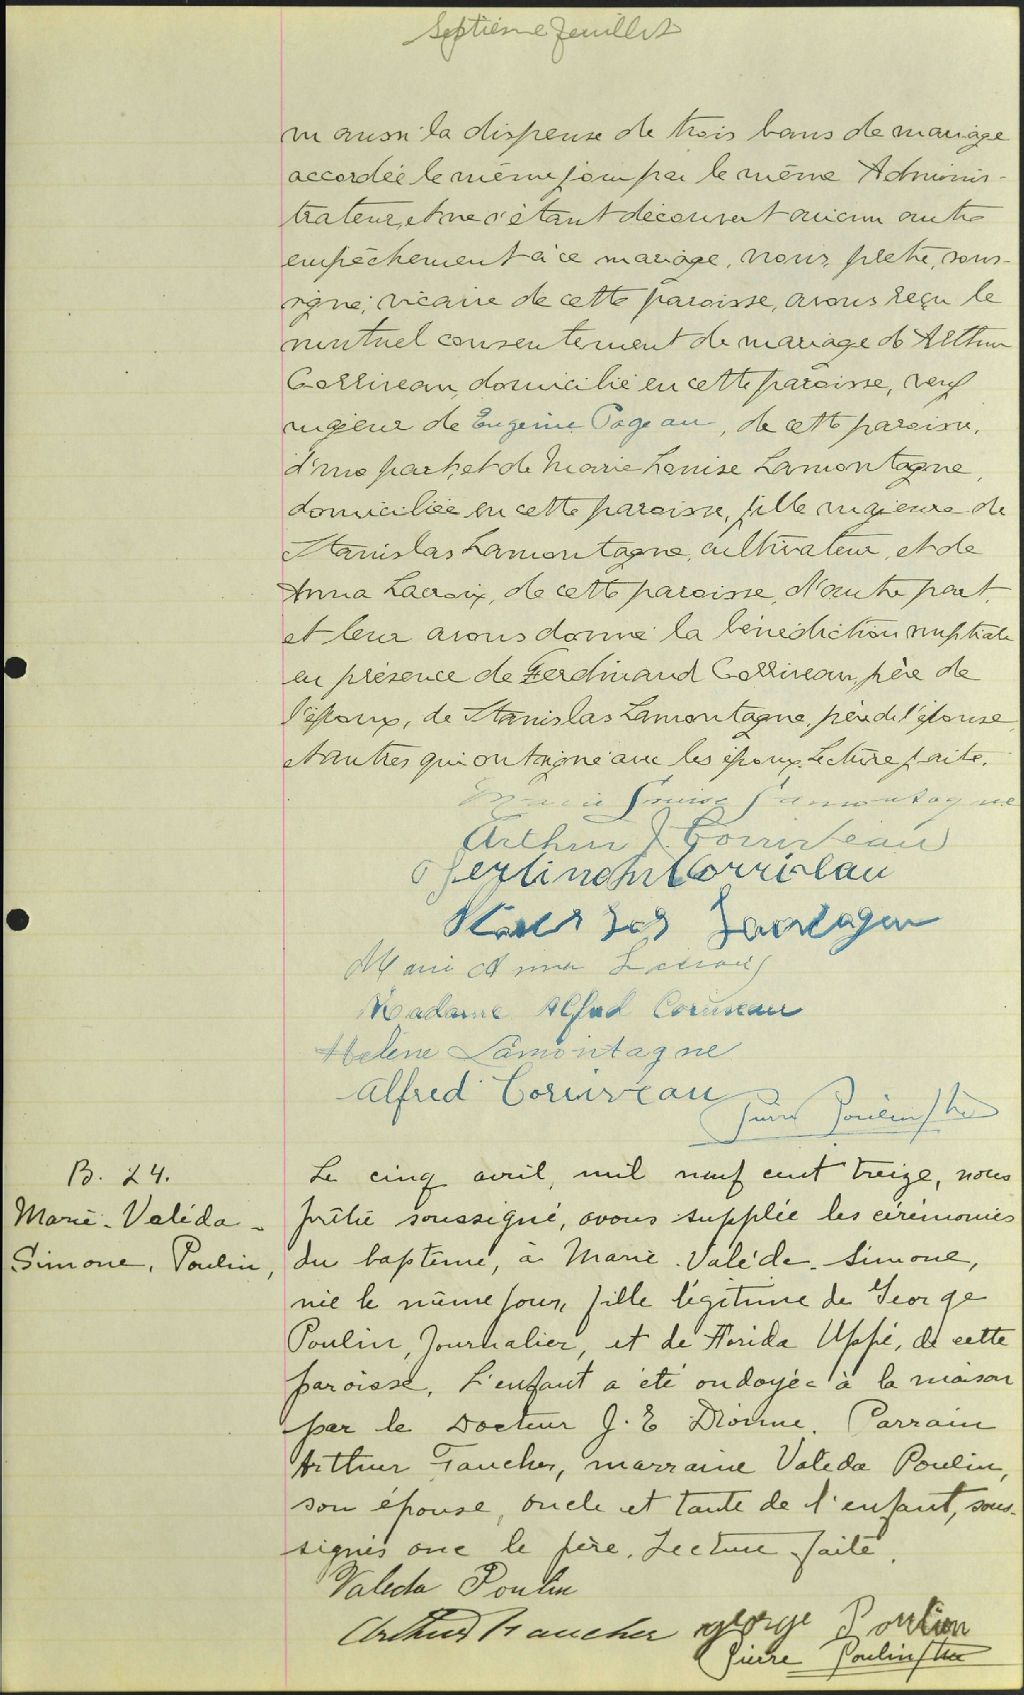 Septième feuillet
vu aussi la dispense de trois bans de mariage
accordée le même jour par le même Adminis-
trateur, et ne s'étant découvert aucun autre
empêchement à ce mariage, nous, prêtre, sous-
signé, vicaire de cette paroisse, avons reçu le
mutuel consentement de mariage de Arthur
Corriveau, domicilié en cette paroisse, veuf
majeur de Eugénie Pageau, de cette paroisse,
d'une part, et de Marie Louise Lamontagne,
domiciliée en cette paroisse, fille majeure de
Stanislas Lamontagne, cultivateur, et de
Anna Lacroix, de cette paroisse, d'autre part,
et leur avons donné la bénédiction nuptiale
en présence de Ferdinand Corriveau, père de
l'époux, de Stanislas Lamontagne, père de l'épouse
et autres qui ont signé avec les époux. Lecture faite.
Marie Louise Lamontagne
Arthur J. Corriveau
Ferdinand Corriveau
Marie Anna Lacroix
Madame Alfred Corriveau
Hélène Lamontagne
Alfred Corriveau
Pierre Poulin, Ptre
B. 24.
Marie-Valéda-
Simone, Poulin,
Le cinq avril, mil neuf cent treize, nous
prêtre soussigné, avons supplée les cérémonies
du baptême, à Marie-Valéda-Simone,
née le même jour, fille légitime de George
Poulin, Journalier, et de Florida Uppé, de cette
paroisse. L'enfant a été ondoyée à la maison
par le Docteur J. E Dionne. Parrain
Arthur Faucher, marraine Valeda Poulin,
son épouse, oncle et tante de l'enfant, sous-
signés avec le père. Lecture faite.
Valeda Poulin
Arthur Faucher george Poulin
Pierre Poulin, Ptre